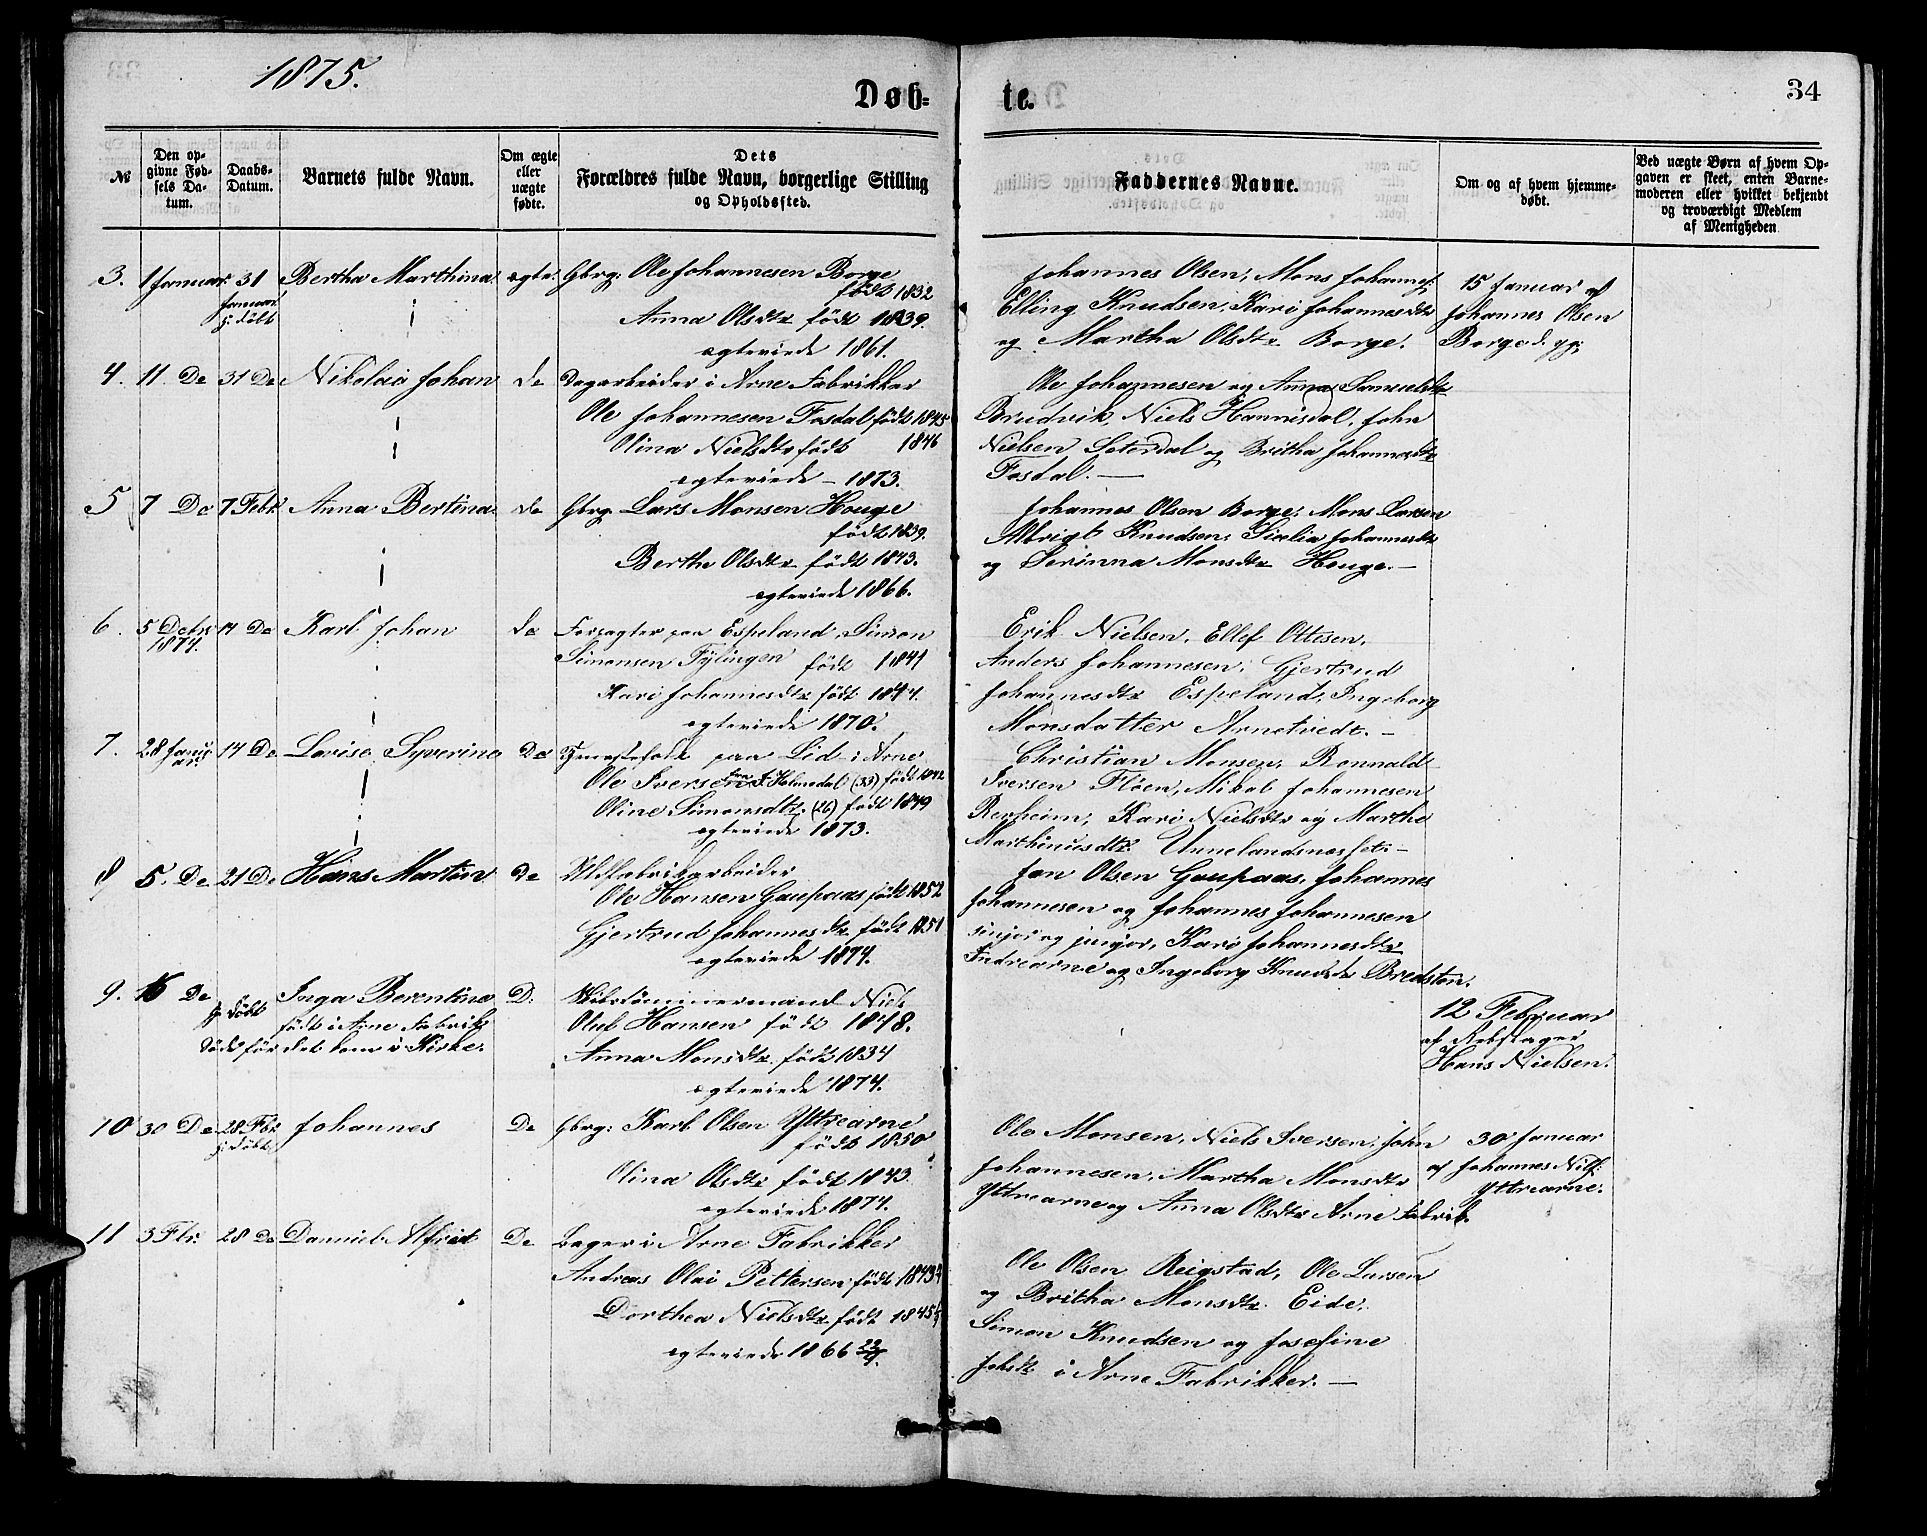 1875.
Døb=
te.
34
№
Den op-
givne Fød-
sels Da-
tum.
Daabs-
Datum.
Barnets fulde Navn.
Om ægte
eller
uægte
fødte.
Dets
Forældres fulde Navn, borgerlige Stilling
og Opholdssted.
Faddernes Navne.
Om og af hvem hjemme-
døbt.
Ved uægte Børn af hvem Op-
gaven er skeet, enten Barne-
moderen eller hvilket bekjendt
og troværdigt Medlem
af Menigheden
3. 1 Januar 31 Bertha Marthina ægte Gbrg: Ole Johannesen Borge
Januar født 1832
hj. døbt Anna Olsdtr født 1839.
ægteviede 1861.
Johannes Olsen, Mons Johannes:
Elling Knudsen, Kari Johannesdtr
og Martha Olsdtr Borge.
15 Januar af
Johannes Olsen
Borge
4. 11 De 31 De Nikolai Johan de Dagarbeider i Arne Fabrikker
Ole Johannesen Fosdal født 1845
Olina Nielsdtr født 1846
ægteviede – 1873.
Ole Johannesen og Anna Samuelsdtr
Brudvik, Niels Hannisdal, John
Nielsen Seterdal og Britha Johannesdtr
Fosdal. —
5 7 De 7 Febr Anna Bertina de Gbrg. Lars Monsen Houge
født 1839.
Berthe Olsdtr født 1843.
ægteviede 1866.
Johannes Olsen Borge, Mons Larsen
Albrigt Knudsen, Sicelia Johannesdtr
og Serinna Monsdtr Houge. —
6. 5 Debr 14 De Karl Johan de Forpagter paa Espeland Simon
1874. Simonsen Fylingen født 1841
Kari Johannesdtr født 1844.
ægteviede 1870.
Erik Nielsen, Ellef Ottesen,
Anders Johannesen, Gjertrud
Johannesdtr Espeland, Ingeborg
Monsdatter Arnetvedt. —
7. 28 Janu 14 De Lovise Syverine De Tjenestefolk paa Lid i Arne
ar Ole Iversen fra Holmedal (33) født 1842
Oline Simonsdtr. (26) født 1849
ægteviede 1873.
Christian Monsen, Ronnald
Iversen Fløen, Mikal Johannesen
Renheim, Kari Nielsdtr og Marthe
Marthinusdtr Unnelandsnesset. —
8 5. De 21 De Hans Martin de Uldfabrikarbeider
Ole Hansen Gaupaas født 1852
Gjertrud Johannesdtr født 1851
ægteviede 1874.
Jan Olsen Gaupaas, Johannes
Johannesen og Johannes Johannesen
sinjor og junjor, Kari Johannesdtr
Indrearne og Ingeborg Knudsdtr Bredsten.
9. 16 De hj. døbt Inga Berentine D. Skibstømmermand Niels
født i Arne Fabrik Oluf Hansen født 1848.
død før det kom i Kirke. Anna Monsdtr. født 1834
ægteviede 1874.
12 Februar
af Rebslager
Hans Nielsen.
10 30 De 28 Fbr Johannes De Gbrg: Karl Olsen Yttrearne
hj. døbt født 1850
Olina Olsdtr født 1843
ægteviede 1874.
Ole Monsen, Niels Iversen, John
Johannesen, Martha Monsdtr
Yttrearne og Anna Olsdtr Arne Fabrik.
30 Januar
af Johannes Nils:
Yttrearne.
11 3 Fbr. 28 De Danniel Alfred De Bager i Arne Fabrikker
Andreas Olai Pettersen født 1843
Dorthea Nielsdtr født 1845
ægteviede 1866
Ole Olsen Reigstad, Ole Larsen
og Britha Monsdtr. Eide,
Simon Knudsen og Josefine
Johsdtr i Arne Fabrikker. —